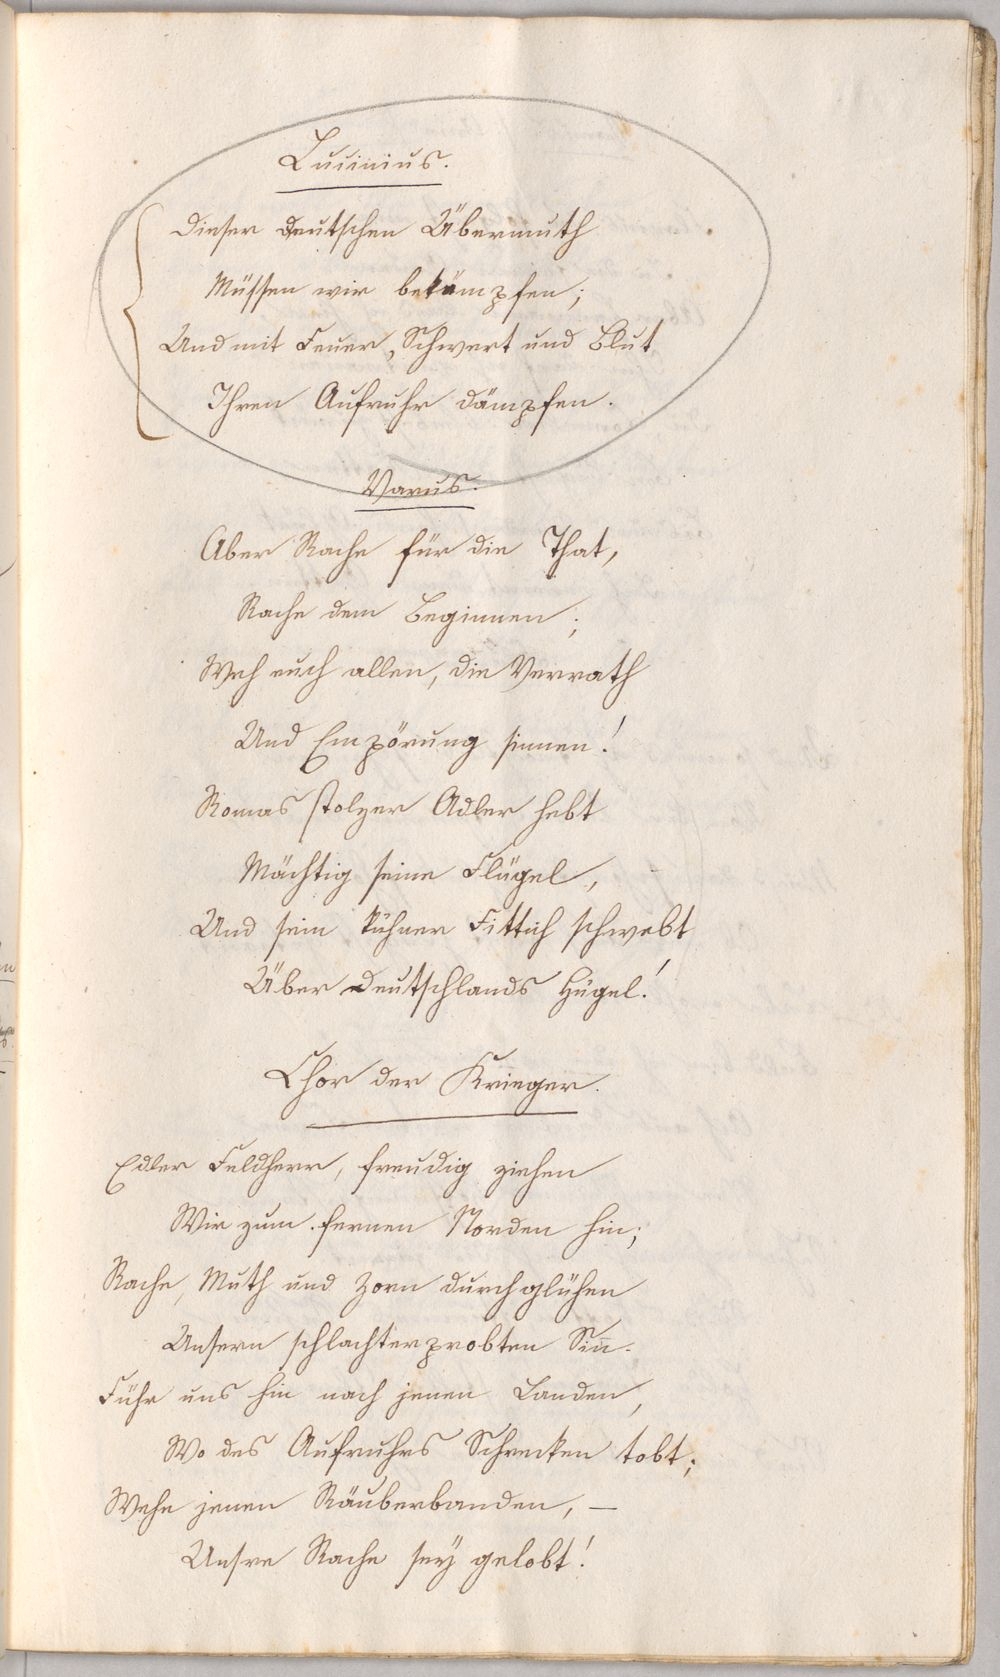 Lucinius.
Dieser Deutschen Übermuth
Müssen wir bekämpfen;
Und mit Feuer, Schwert und Blut
Ihren Aufruhr dämpfen.
Varus.
Aber Rache für die That,
Rache dem Beginnen;
Weh euch allen, die Verrath
Und Empörung sinnen!
Romas stolzer Adler hebt
Mächtig seine Flügel,
Und sein kühner Fittich schwebt
Über Deutschlands Hügel!
Chor der Krieger.
Edler Feldherr, freudig ziehen
Wir zum fernen Norden hin;
Rache, Muth und Zorn durchglühen
Unsern schlachterprobten Sin̄.
Führ uns hin nach jenen Landen,
Wo des Aufruhrs Schrecken tobt;
Wehe jenen Räuberbanden, —
Unsre Rache sey gelobt!